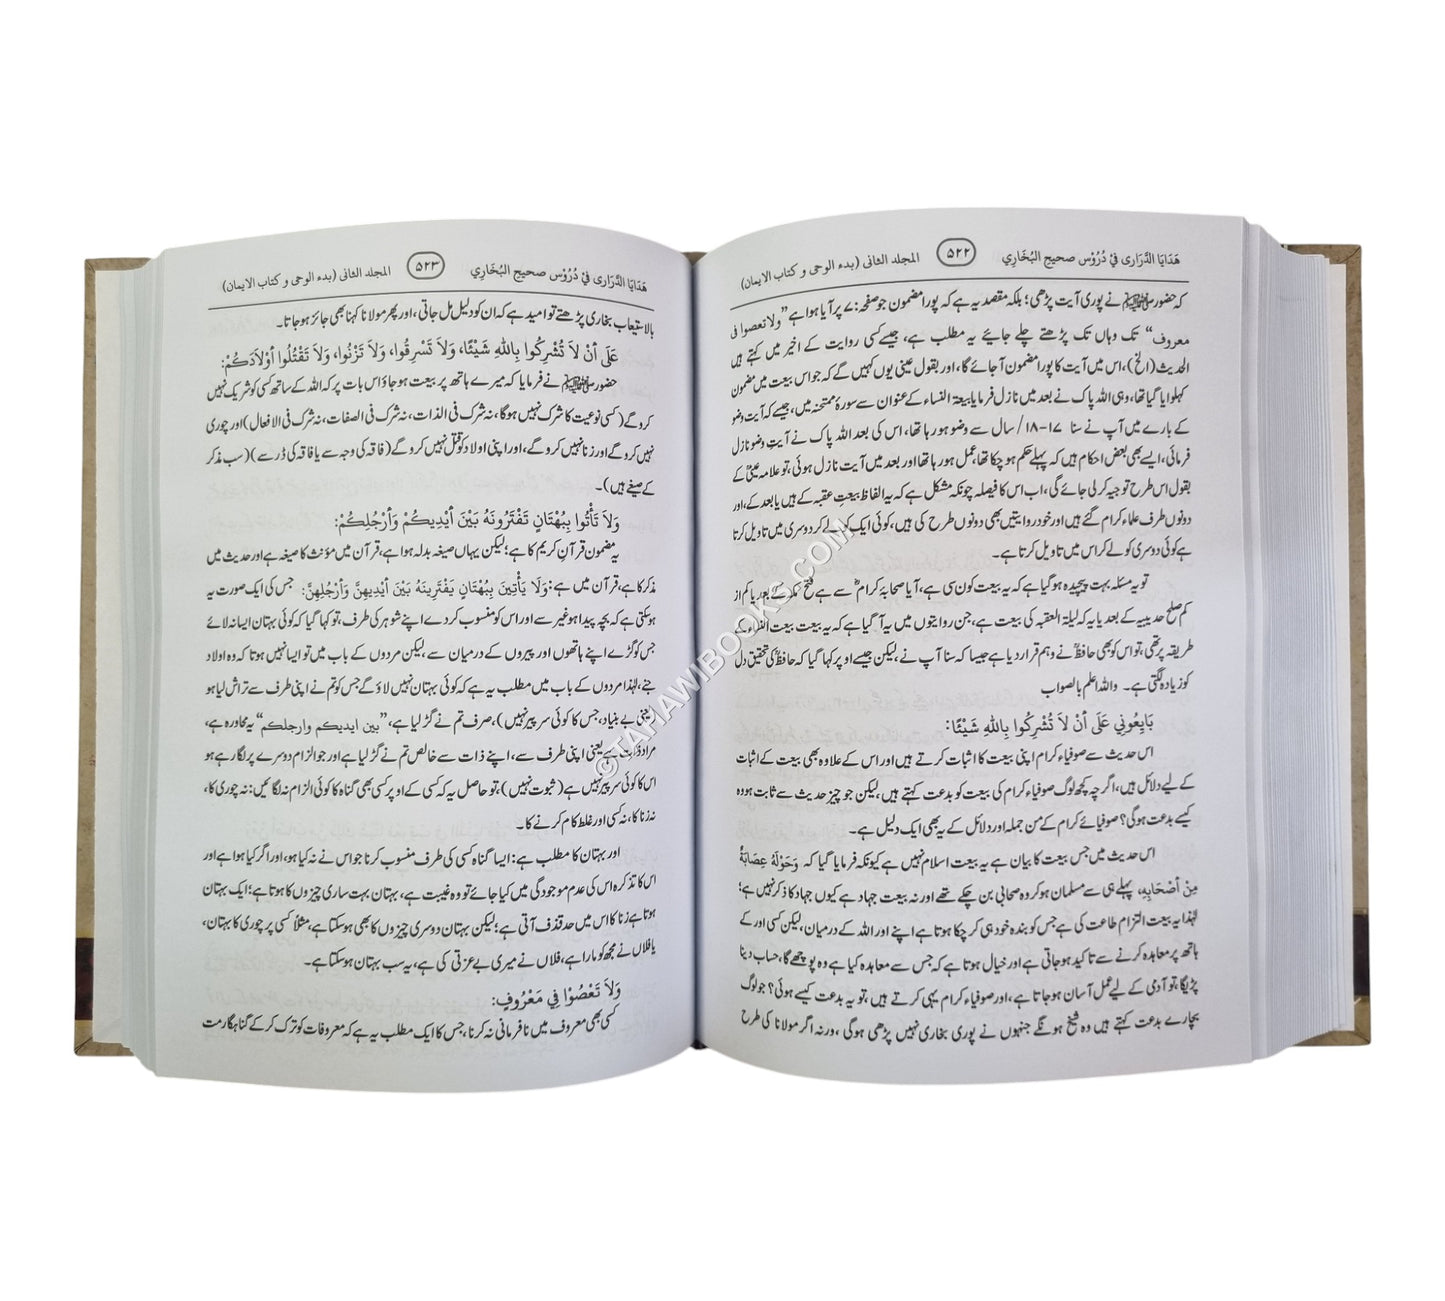 هَدَايَا الدَّرَارِى فِيْ دُرُوْس صحيح البُخَارِي ۵۲۲ المجلد الثانى (بدء الوحى و كتاب الايمان)
کہ حضور ﷺ نے پوری آیت پڑھی؛ بلکہ مقصد یہ ہے کہ پورا مضمون جو صفحہ: ۷ پر آیا ہوا ہے ”ولا تعصوا فی
معروف“ تک وہاں تک پڑھتے چلے جائیے یہ مطلب ہے، جیسے کسی روایت کے اخیر میں کہتے ہیں
الحدیث (الخ)، اس میں آیت کا پورا مضمون آجائے گا، اور بقول عینی یوں کہیں گے کہ جو اس بیعت میں مضمون
کہلوایا گیا تھا، وہی اللہ پاک نے بعد میں نازل فرمایا بیعۃ النساء کے عنوان سے سورۂ ممتحنہ میں، جیسے کہ آیت وضو
کے بارے میں آپ نے سنا ۱۷-۱۸/ سال سے وضو ہو رہا تھا، اس کی بعد اللہ پاک نے آیتِ وضو نازل
فرمائی، ایسے بھی بعض احکام ہیں کہ پہلے حکم ہو چکا تھا، عمل ہو رہا تھا اور بعد میں آیت نازل ہوئی، تو علامہ عینیؒ کے
بقول اس طرح توجیہ کرلی جائے گی، اب اس کا فیصلہ چونکہ مشکل ہے کہ یہ الفاظ بیعتِ عقبہ کے ہیں یا بعد کے، اور
دونوں طرف علماء کرام گئے ہیں اور خود روایتیں بھی دونوں طرح کی ہیں، کوئی ایک کو لے کر دوسری میں تاویل کرتا
ہے کوئی دوسری کو لے کر اس میں تاویل کرتا ہے۔
تو یہ مسئلہ بہت پیچیدہ ہوگیا ہے کہ یہ بیعت کون سی ہے، آیا صحابہٴ کرامؓ سے ہے فتح مکہ کے بعد یا کم از
کم صلح حدیبیہ کے بعد یا یہ کہ لیلۃ العقبہ کی بیعت ہے، جن روایتوں میں یہ آگیا ہے کہ یہ بیعت بیعت النساء کے
طریقہ پر تھی، تو اس کو بھی حافظؒ نے وہم قرار دیا ہے جیسا کہ سنا آپ نے، لیکن جیسے اوپر کہا گیا کہ حافظؒ کی تحقیق دل
کو زیادہ لگتی ہے۔ واللہ اعلم بالصواب
بَايِعُونِي عَلَى أَنْ لَا تُشْرِكُوا بِاللَّهِ شَيْئًا:
اس حدیث سے صوفیاء کرام اپنی بیعت کا اثبات کرتے ہیں اور اس کے علاوہ بھی بیعت کے اثبات
کے لیے دلائل ہیں، اگر چہ کچھ لوگ صوفیاء کرام کی بیعت کو بدعت کہتے ہیں، لیکن جو چیز حدیث سے ثابت ہو وہ
کیسے بدعت ہوگی؟ صوفیائے کرام کے من جملہ اور دلائل کے یہ بھی ایک دلیل ہے۔
اس حدیث میں جس بیعت کا بیان ہے یہ بیعت اسلام نہیں ہے کیونکہ فرمایا گیا کہ وَحَوْلَهُ عِصَابَةٌ
مِنْ أَصْحَابِهِ، پہلے ہی سے مسلمان ہو کر وہ صحابی بن چکے تھے اور نہ بیعت جہاد ہے کیوں جہاد کا ذکر نہیں ہے؛
لہٰذا یہ بیعت التزام طاعت کی ہے جس کو بندہ خود ہی کر چکا ہوتا ہے اپنے اور اللہ کے درمیان، لیکن کسی اور کے
ہاتھ پر معاہدہ کرنے سے تاکید ہوجاتی ہے اور خیال ہوتا ہے کہ جس سے معاہدہ کیا ہے وہ پوچھے گا، حساب دینا
پڑیگا، تو آدمی کے لیے عمل آسان ہوجاتا ہے، اور صوفیاء کرام یہی کرتے ہیں، تو یہ بدعت کیسے ہوئی؟ جو لوگ
بچارے بدعت کہتے ہیں وہ شیخ ہونگے جنہوں نے پوری بخاری نہیں پڑھی ہوگی، ورنہ اگر مولانا کی طرح
هَدَايَا الدَّرَارِى فِيْ دُرُوْس صحيح البُخَارِي ۵۲۳ المجلد الثانى (بدء الوحى و كتاب الايمان)
بالاستیعاب بخاری پڑھتے تو امید ہے کہ ان کو دلیل مل جاتی، اور پھر مولانا کہنا بھی جائز ہوجاتا۔
عَلَى أَنْ لَا تُشْرِكُوا بِاللَّهِ شَيْئًا، وَلَا تَسْرِقُوا، وَلَا تَزْنُوا، وَلَا تَقْتُلُوا أَوْلَادَكُمْ:
حضور ﷺ نے فرمایا کہ میرے ہاتھ پر بیعت ہوجاؤ اس بات پر کہ اللہ کے ساتھ کسی کو شریک نہیں
کرو گے (کسی نوعیت کا شرک نہیں ہوگا، نہ شرک فی الذات، نہ شرک فی الصفات، نہ شرک فی الافعال) اور چوری
نہیں کرو گے اور زنا نہیں کرو گے، اور اپنی اولاد کو قتل نہیں کرو گے (فاقہ کی وجہ سے یا فاقہ کی ڈر سے) (سب مذکر
کے صیغے ہیں)۔
وَلَا تَأْتُوا بِبُهْتَانٍ تَفْتَرُونَهُ بَيْنَ أَيْدِيكُمْ وَأَرْجُلِكُمْ:
یہ مضمون قرآن کریم کا ہے؛ لیکن یہاں صیغہ بدلہ ہوا ہے، قرآن میں مؤنث کا صیغہ ہے اور حدیث میں
مذکر کا ہے، قرآن میں ہے: وَلَا يَأْتِينَ بِبُهْتَانٍ يَفْتَرِينَهُ بَيْنَ أَيْدِيهِنَّ وَأَرْجُلِهِنَّ: جس کی ایک صورت یہ
ہوسکتی ہے کہ بچہ پیدا ہو غیر سے اور اس کو منسوب کردے اپنے شوہر کی طرف، تو کہا گیا کہ کوئی بہتان ایسا نہ لائے
جس کو گڑے اپنے ہاتھوں اور پیروں کے درمیان سے، لیکن مردوں کے باب میں تو ایسا نہیں ہوتا کہ وہ اولاد
جنے، لہٰذا مردوں کے باب میں مطلب یہ ہے کہ کوئی بہتان نہیں لاؤ گے جس کو تم نے اپنی طرف سے تراش لیا ہو
(یعنی بے بنیاد، جس کا کوئی سر پیر نہیں)، صرف تم نے گڑ لیا ہے، ”بين ايديكم وارجلكم“ یہ محاورہ ہے،
مراد ذات ہے یعنی اپنی طرف سے، اپنے ذات سے خالص تم نے گڑ لیا ہے اور جو الزام دوسرے پر لگا رہے ہو
اس کا کوئی سر پیر نہیں ہے (ثبوت نہیں)، تو حاصل یہ کہ کسی کے اوپر کسی بھی گناہ کا کوئی الزام نہ لگائیں: نہ چوری کا،
نہ زنا کا، نہ کسی اور غلط کام کرنے کا۔
اور بہتان کا مطلب ہے: ایسا گناہ کسی کی طرف منسوب کرنا جو اس نے نہ کیا ہو، اور اگر کیا ہوا ہے اور
اس کا تذکرہ اس کی عدم موجودگی میں کیا جائے تو وہ غیبت ہے، بہتان بہت ساری چیزوں کا ہوتا ہے؛ ایک بہتان
ہوتا ہے زنا کا اس میں حد قذف آتی ہے؛ لیکن بہتان دوسری چیزوں کا بھی ہوسکتا ہے، مثلاً کسی پر چوری کا بہتان،
یا فلاں نے مجھ کو مارا ہے، فلاں نے میری بے عزتی کی ہے، یہ سب بہتان ہوسکتا ہے۔
وَلَا تَعْصُوْا فِي مَعْرُوفٍ:
کسی بھی معروف میں نافرمانی نہ کرنا، جس کا ایک مطلب یہ ہے کہ معروفات کو ترک کرکے گناہگار مت
©TAHAWIBOOKS.COM